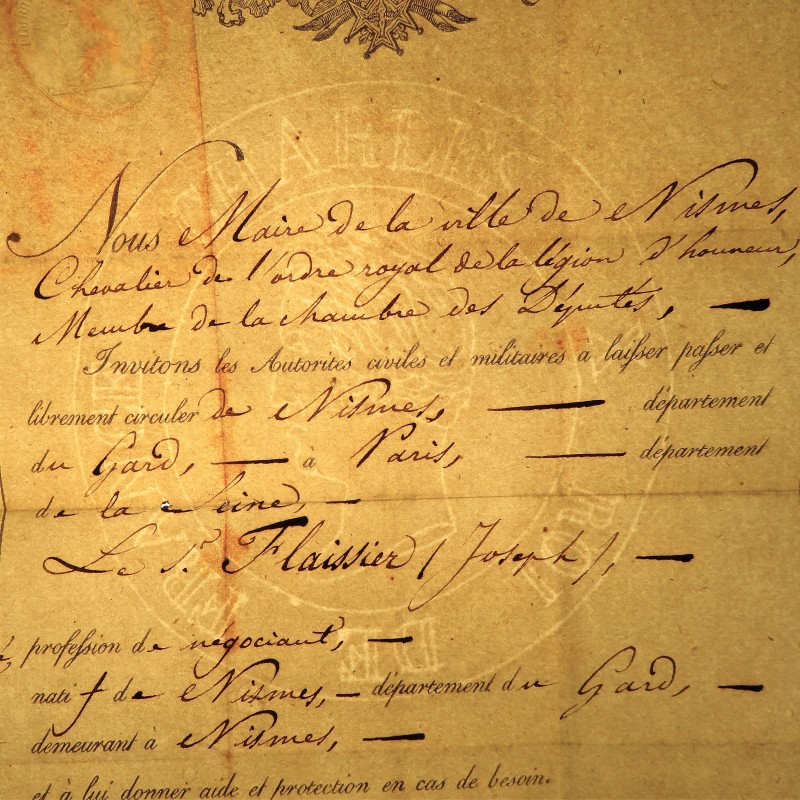 Nous Maire de la ville de Nismes,
Chevalier de l'ordre royal de la légion d'honneur,
Membre de la chambre des Députés, —
Invitons les Autorités civiles et militaires à laisser passer et
librement circuler de Nismes, — département
du Gard, — à Paris, — département
de la Seine, —
Le S.r Flaissier (Joseph), —
profession de négociant, —
natif de Nismes, — département du Gard, —
demeurant à Nismes, —
et à lui donner aide et protection en cas de besoin.